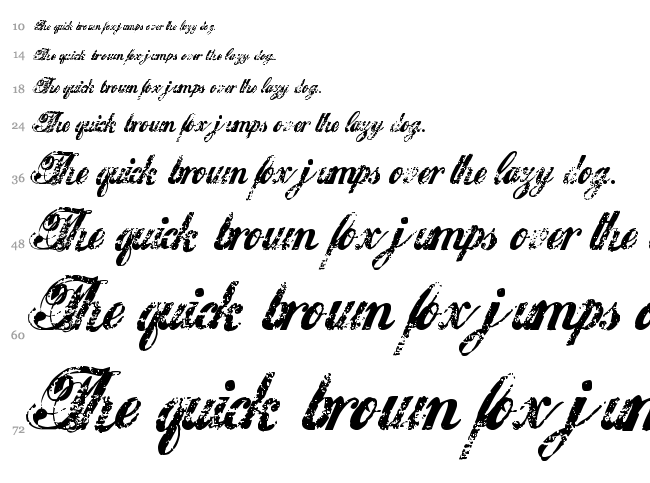 10 The quick brown fox jumps over the lazy dog.
14 The quick brown fox jumps over the lazy dog.
18 The quick brown fox jumps over the lazy dog.
24 The quick brown fox jumps over the lazy dog.
36 The quick brown fox jumps over the lazy dog.
48 The quick brown fox jumps over the
60 The quick brown fox jumps o
72 The quick brown fox jun